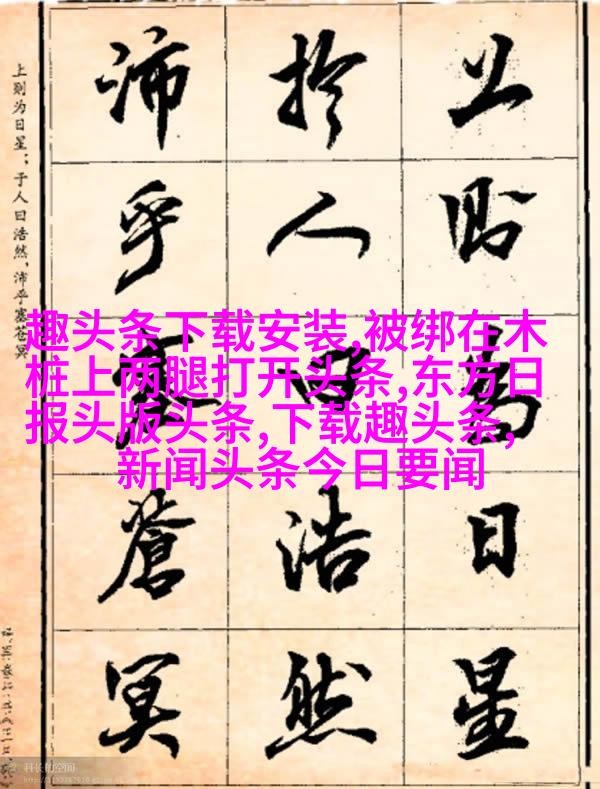 上則為日星
於人曰浩然
沛乎塞蒼冥
上则为日星；于人曰浩然，沛乎塞苍冥
趣头条下载安装,被绑在木
桩上两腿打开头条,东方日
报头版头条,下载趣头条,
新闻头条今日要闻
科长的空间